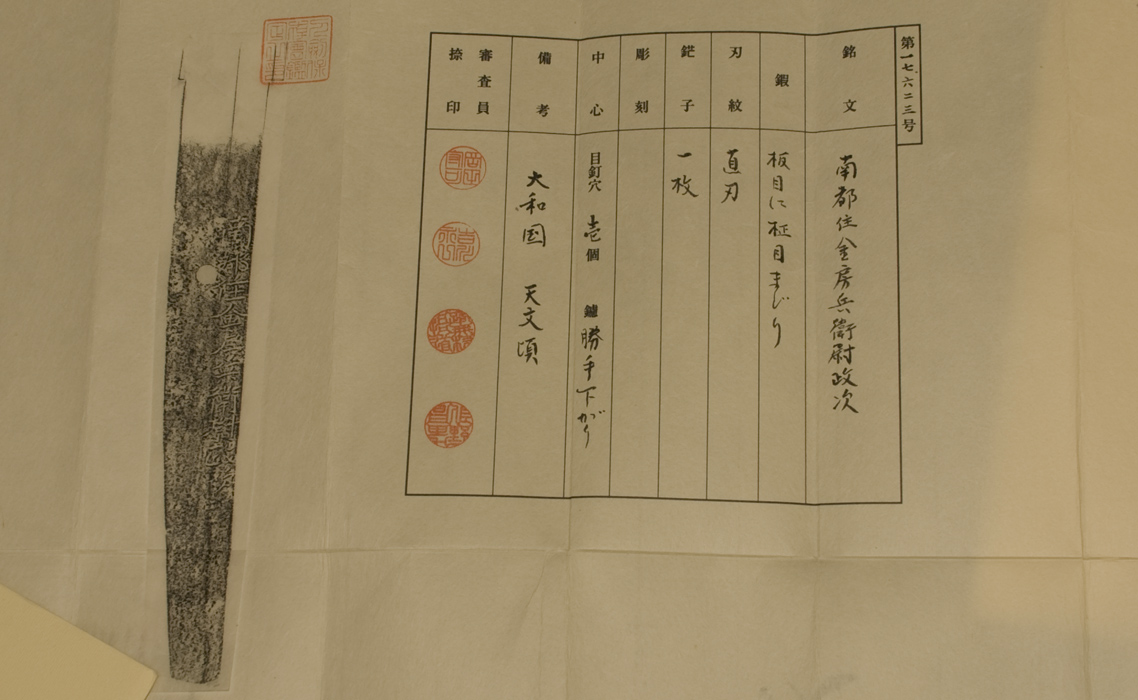 第一七六二三号
銘文
南都住金房兵衛尉政次
鍜
板目に柾目まじり
刃紋
直刃
鋩子
一枚
彫刻
中心
目釘穴 壱個 鑢 勝手下がり
備考
大和国 天文頃
審査員
捺印
南都住金房兵衛尉政次